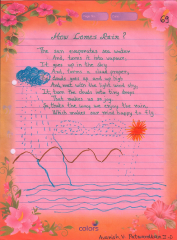 How Comes Rain?
The sun evaporates sea water
And, turns it into vapour.
It goes up in the sky
And forms a cloud proper,
Clouds goes up and up high
And, meet with the light wind sky,
It turn the clouds into tiny drops
That makes us so joy.
In India the way we enjoy the rain,
Which makes our mind happy to fly.
colors